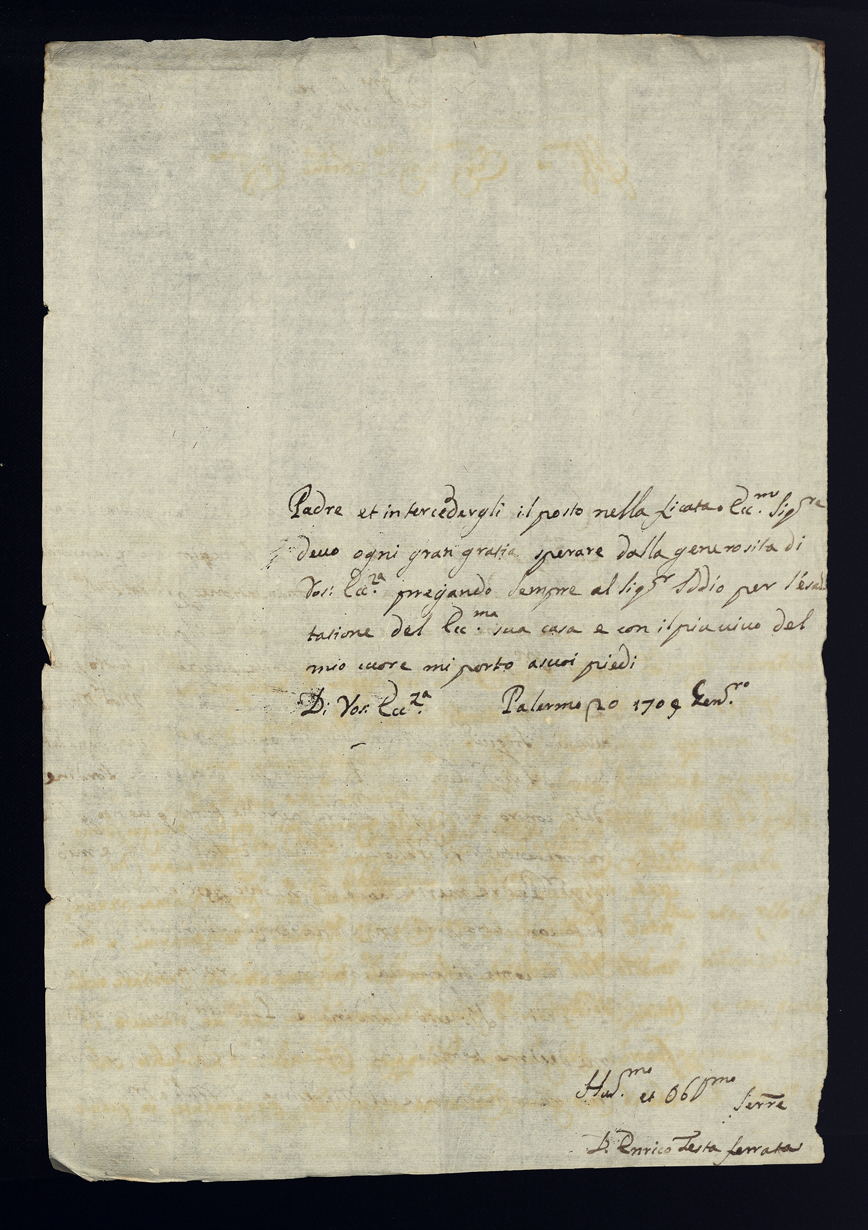 Padre et intercedergli il posto nella licata o Ecc.mo Sig.re
devo ogni gran gratia sperare dalla generosita di
Vos: Ecc.za pregando sempre al sig.r Iddio per l'esal
tatione del Ecc.ma sua casa e con il piu vivo del
mio cuore mi porto a suoi piedi
Di Vos: Ecc.za Palermo 20 1709 Gen.ro
Hu.mo et Obb.mo
Serre
D. Enrico Testa ferrata